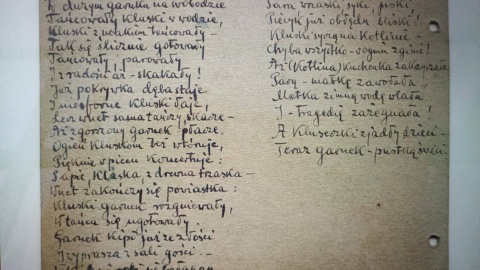 W dużym garnku na wolbodzie
Tańcowały Kluski w wodzie,
Kluski z makiem tańcowały -
Tak się ślicznie gotowały
Tańcowały, parowały
I z radości aż - skakały!
Już pokrywka dębastaje
I niesforne Kluski łaje,
Lecz wnet sama tańczy, skacze -
Aż zgorszony garnek płacze.
Ogień Kluskom też wtóruje,
Pięknie w piecu Koncertuje:
Sapie, Klaska, z drewna trzaska -
Wnet zakończy się powiastka:
Kluski garnek rozgniewały,
W tańcu się ugotowały
Garnek Kipi już ze złości
I wyprasza z sali gości. -
Para wrzaski, syki, piski,
Piecyk już obłędu bliski!
Kluski syczą na Kotlinie -
Chyba wszystko - w ogniu zginie!
Aż (Kotlina) Kucharka zakaszlała
Parą - matkę zawołała -
Matka zimną wodę wlała
I - tragedię zażegnała!
A Kluseczki zjadły dzieci -
Teraz garnek - pustką świeci.